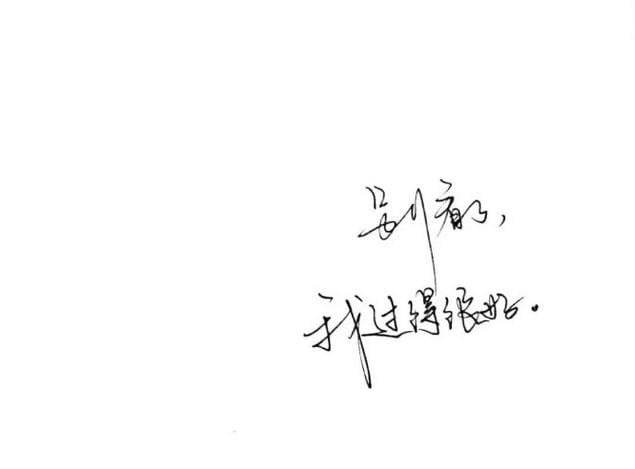 别看了，
我过得很好。